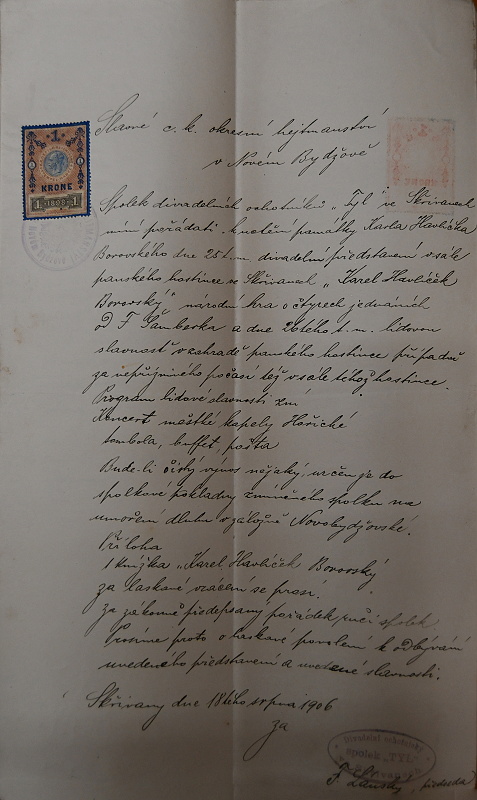 Slavné c. k. okresní hejtmanství
v Novém Bydžově
1
KRONE
1 1898 1
Spolek divadelních ochotníků „Tyl" ve Skřivanech
míní pořádati k uctění památky Karla Havlíčka
Borovského dne 25 t. m. divadelní představení v sále
panského hostince ve Skřivanech „Karel Havlíček
Borovský" národní hra o čtyrech jednáních
od F Šamberka a dne 26tého t. m. lidovou
slavnost v zahradě panského hostince případně
za nepříznivého počasí též v sále téhož hostince.
Program lidové slavnosti zní
Koncert městké kapely Hořické
tombola, buffet, pošta
Bude-li čistý výnos nějaký, určen je do
spolkové pokladny zmíněného spolku na
umoření dluhu v záložně Novobydžovské.
Příloha
1 knížka „Karel Havlíček Borovský
za laskavé vrácení se prosí.
Za zákonně předepsaný pořádek ručí spolek
Prosíme proto o laskavé povolení k odbývání
uvedeného představení a uvedené slavnosti.
Skřivany dne 18tého srpna 1906
za
spolek „TYL"
F. Lánský, předseda